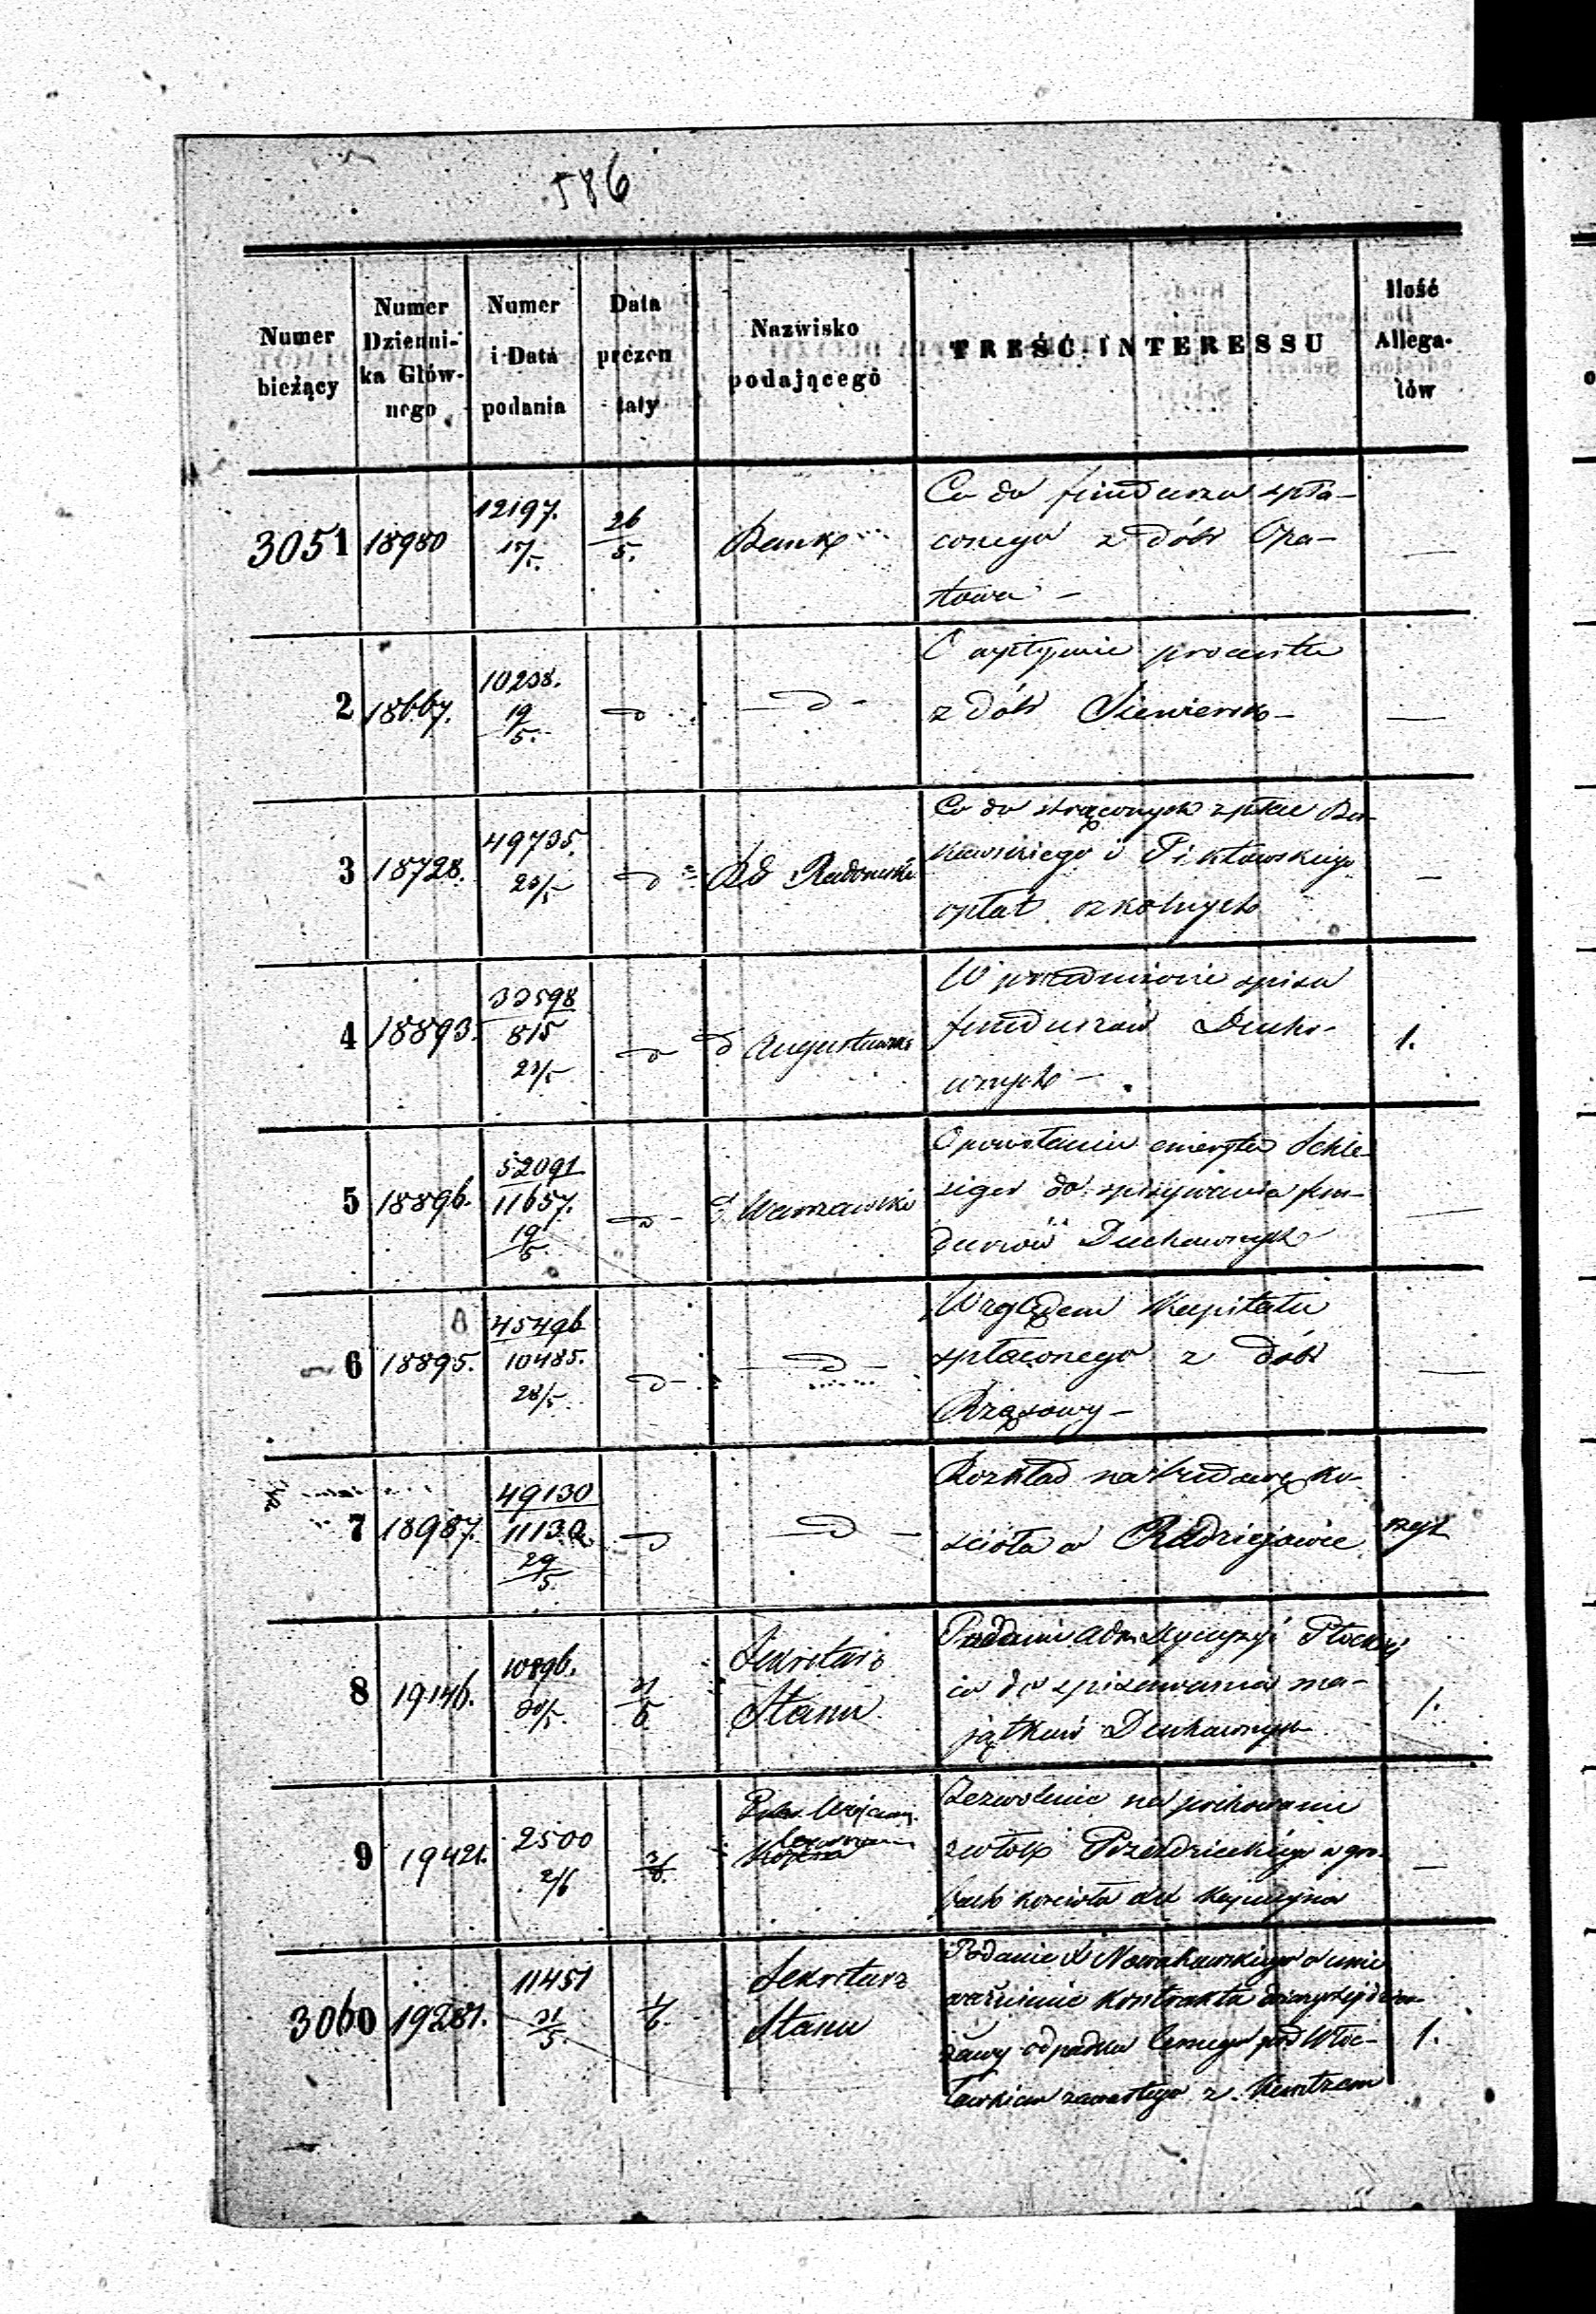 586
Numer bieżący
Numer Dzienni-ka Głów-nego
Numer i Data podania
Data prezen taty
Nazwisko podającego
TREŚĆ INTERESSU
Ilość Allega-tów
3051 18980 12197. 26/5. Bank
Co do funduszu spła-
conego z dóbr Opa-
towa –
2 18667. 10238. 19/5. –d– –d–
O wpływie procentu
z dóbr Siewiersk –
3 18728. 49735. 23/5 –d– Rd Radomski
Co do strąconych
i
opłat szkolnych
4 18893. 33598/815 23/5 –d– d Augustowski 1.
W przedmiocie spisu
funduszów Ducho-
wnych –
5 18896. 52091/11657. 19/5 –d– d Warszawski
O powołaniu emeryta Schle-
siger do spisywania fun-
duszów Duchownych
6 18895. 45496/10485. 28/5 –d– –d–
Względem Kapitału
spłaconego z dóbr
7 18987. 49130/11132 29/5 –d– –d–
Rozkład na budowę ko-
ścioła w Radziejowie
8 19146. 10896. 30/5 Sekretarz Stanu 1.
Podanie Adm Dyecezyi Płockiej
co do spisywania ma-
jątków Duchownych
9 19421. 2500 2/6
Zezwolenie na pochowanie
zwłok Przezdzieckiego w gro-
bach kościoła
3060 19281. 11451 31/5 1/6. Sekretarz Stanu 1.
Podanie X Nowakowskiego o unie
ważnienie kontraktu
żawy odpadku pod Włoc-
ławkiem zawartego z